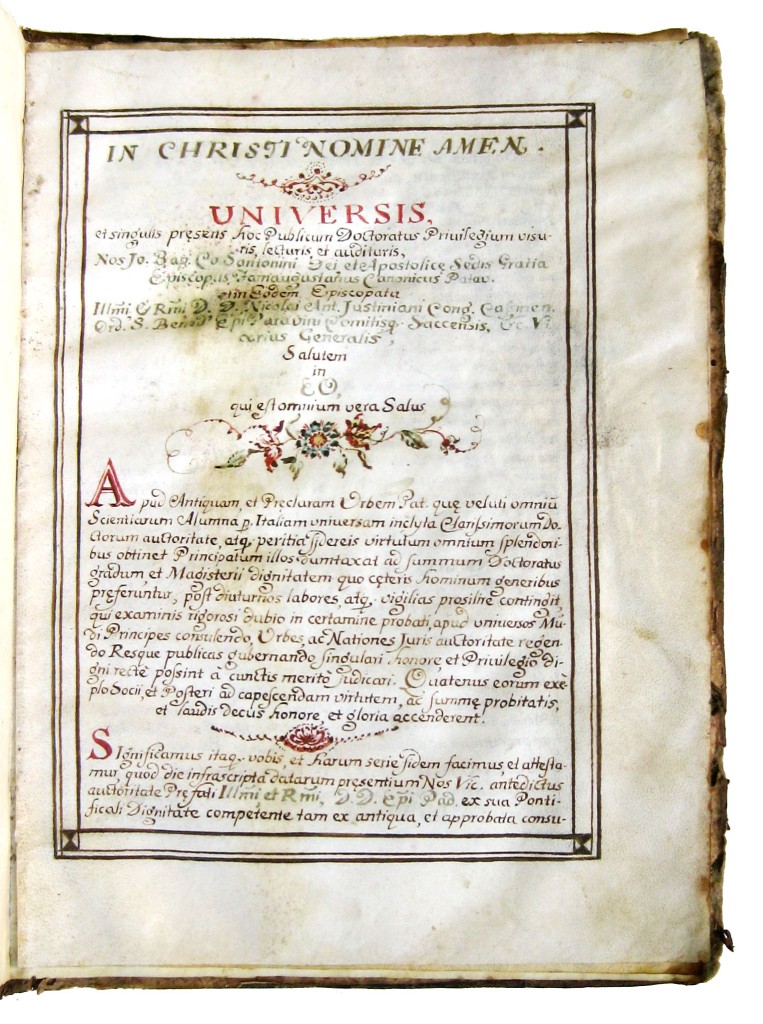 IN CHRISTI NOMINE AMEN.
UNIVERSIS,
et singulis pręsens hoc Publicum Doctoratus Privilegium visu-
ris, lecturis, et audituris,
Nos Jo. Bap. Co. Santonini Dei et Apostolicę Sedis Gratia
Episcopus Famaugustanus Canonicus Patav.
et in Eodem Episcopatu
Illm̃i & Rm̃i D. D. Nicolai Ant. Justiniani Cong. Casinen.
Ord. S. Bened. Epĩ Patavini Comitisq. Saccensis, &c Vi
carius Generalis,
Salutem
in
EO,
qui est omnium vera Salus
Apud Antiquam, et Pręclaram Urbem Pat. quę veluti omniũ
Scientiarum Alumna p. Italiam universam inclyta Clarissimorum Do-
ctorum auctoritate, atq. peritia sidereis virtutum omnium splendori-
bus obtinet Principatum illos dumtaxat ad summum Doctoratus
gradum et Magisterii dignitatem quo cęteris hominum generibus
pręferuntur, post diuturnos labores, atq. vigilias prosilire contingit,
qui examinis rigorosi dubio in certamine probati, apud universos Mu-
di Principes consulendo, Urbes, ac Nationes Juris auctoritate regen-
do Resque publicas gubernando singulari honore, et Privilegio di-
gni rectè possint à cunctis meritò judicari. Quatenus eorum exẽ-
plo Socii, et Posteri ad capescendam virtutem, ac summę probitatis,
et laudis decus honore, et gloria accenderent.
Significamus itaq. vobis, et harum serie fidem facimus, et attesta-
mur, quod die infrascripta datarum presentium Nos Vic. antedictus
auctoritate Prefati Illm̃i et Rm̃i, D. D. Epĩ Pad. ex sua Ponti-
ficali Dignitate competente tam ex antiqua, et approbata consu-